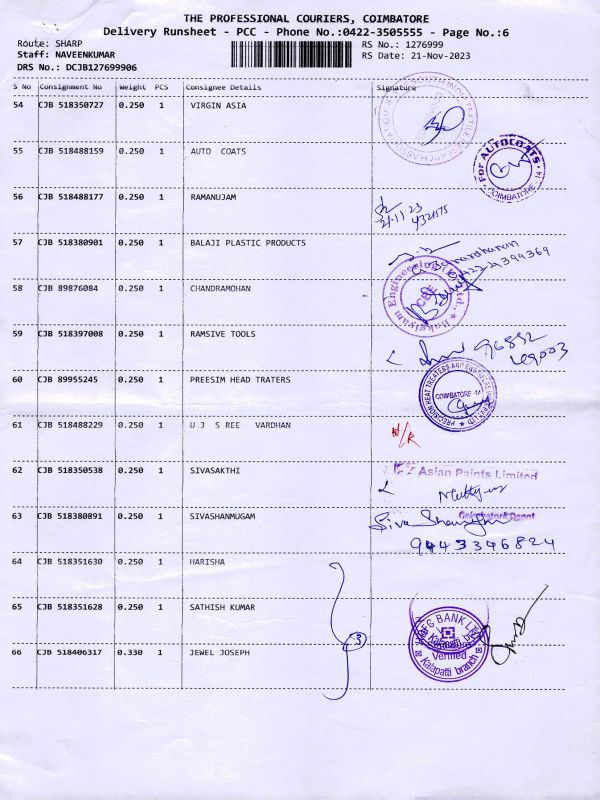 THE PROFESSIONAL COURIERS, COIMBATORE
Delivery Runsheet - PCC - Phone No.:0422-3505555 - Page No.:6
Route: SHARP
RS No.: 1276999
Staff: NAVEENKUMAR
RS Date: 21-Nov-2023
DRS No.: DCJB127699906
S No Consignment No Weight PCS Consignee Details Signature
54 CJB 518350727 0.250 1 VIRGIN ASIA
55 CJB 518488159 0.250 1 AUTO COATS
For AUTOCOATS
COIMBATORE - 14
56 CJB 518488177 0.250 1 RAMANUJAM
21-11 23
4321575
57 CJB 518380901 0.250 1 BALAJI PLASTIC PRODUCTS
58 CJB 89876084 0.250 1 CHANDRAMOHAN
Bakgiyam Engineering (P) Ltd.
CBE
59 CJB 518397008 0.250 1 RAMSIVE TOOLS
60 CJB 89955245 0.250 1 PREESIM HEAD TRATERS
COIMBATORE -14
61 CJB 518488229 0.250 1 U J S REE VARDHAN
N/R
62 CJB 518350538 0.250 1 SIVASAKTHI
Asian Paints Limited
Coimbatore Depot
63 CJB 518380891 0.250 1 SIVASHANMUGAM
9443346824
64 CJB 518351630 0.250 1 HARISHA
65 CJB 518351628 0.250 1 SATHISH KUMAR
3
66 CJB 518406317 0.330 1 JEWEL JOSEPH
Verified
Kalapatti branch